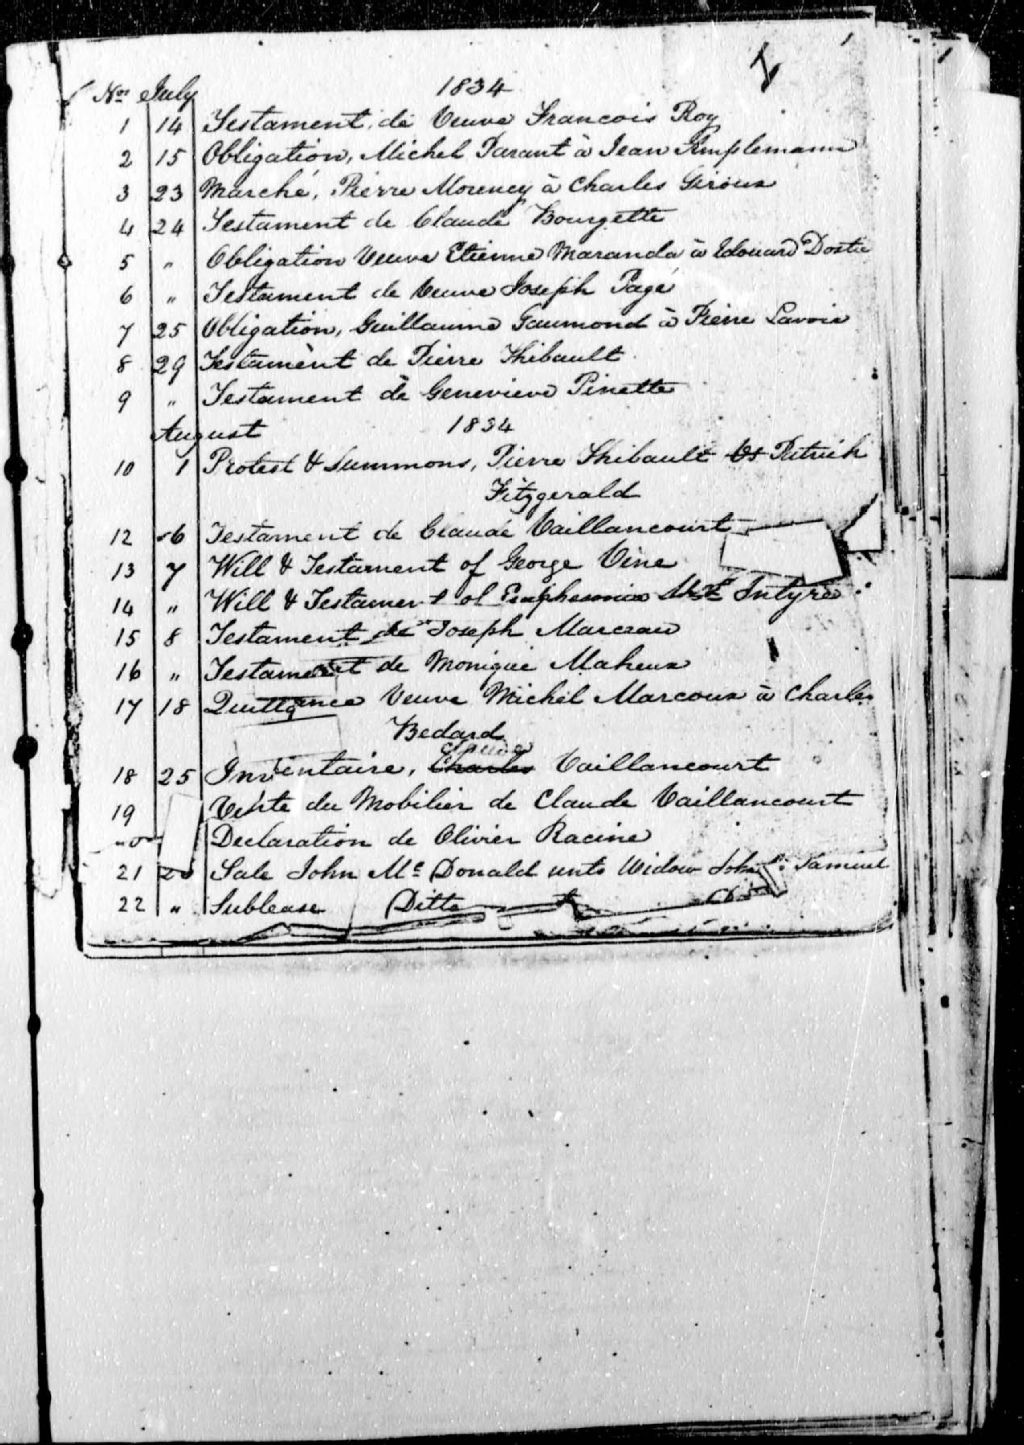 1
Nos July 1834
1 14 Testament de Veuve Francois Roy
2 15 Obligation, Michel Parant à Jean Amplemann
3 23 Marché, Pierre Morency à Charles Giroux
4 24 Testament de Claude Bourgette
5 " Obligation Veuve Etienne Maranda à Edouard Dostie
6 " Testament de Veuve Joseph Pagé
7 25 Obligation, Guillaume Gaumond à Pierre Lavoie
8 29 Testament de Pierre Thibault
9 " Testament de Genevieve Pinette
August 1834
10 1 Protest & Summons, Pierre Thibault Vs Patrick
Fitzgerald
12 6 Testament de Claude Vaillancourt
13 7 Will & Testament of George Vine
14 " Will & Testament of Euphemia Intyre
15 8 Testament de Joseph Marceau
16 " Testament de Monique Maheux
17 18 Quittance Veuve Michel Marcoux à Charles
Bedard
Claude
18 25 Inventaire, Charles Vaillancourt
19 Vente du Mobilier de Claude Vaillancourt
Declaration de Olivier Racine
21 Sale John Mc Donald unto Widow John Samuel
22 " Sublease Ditto